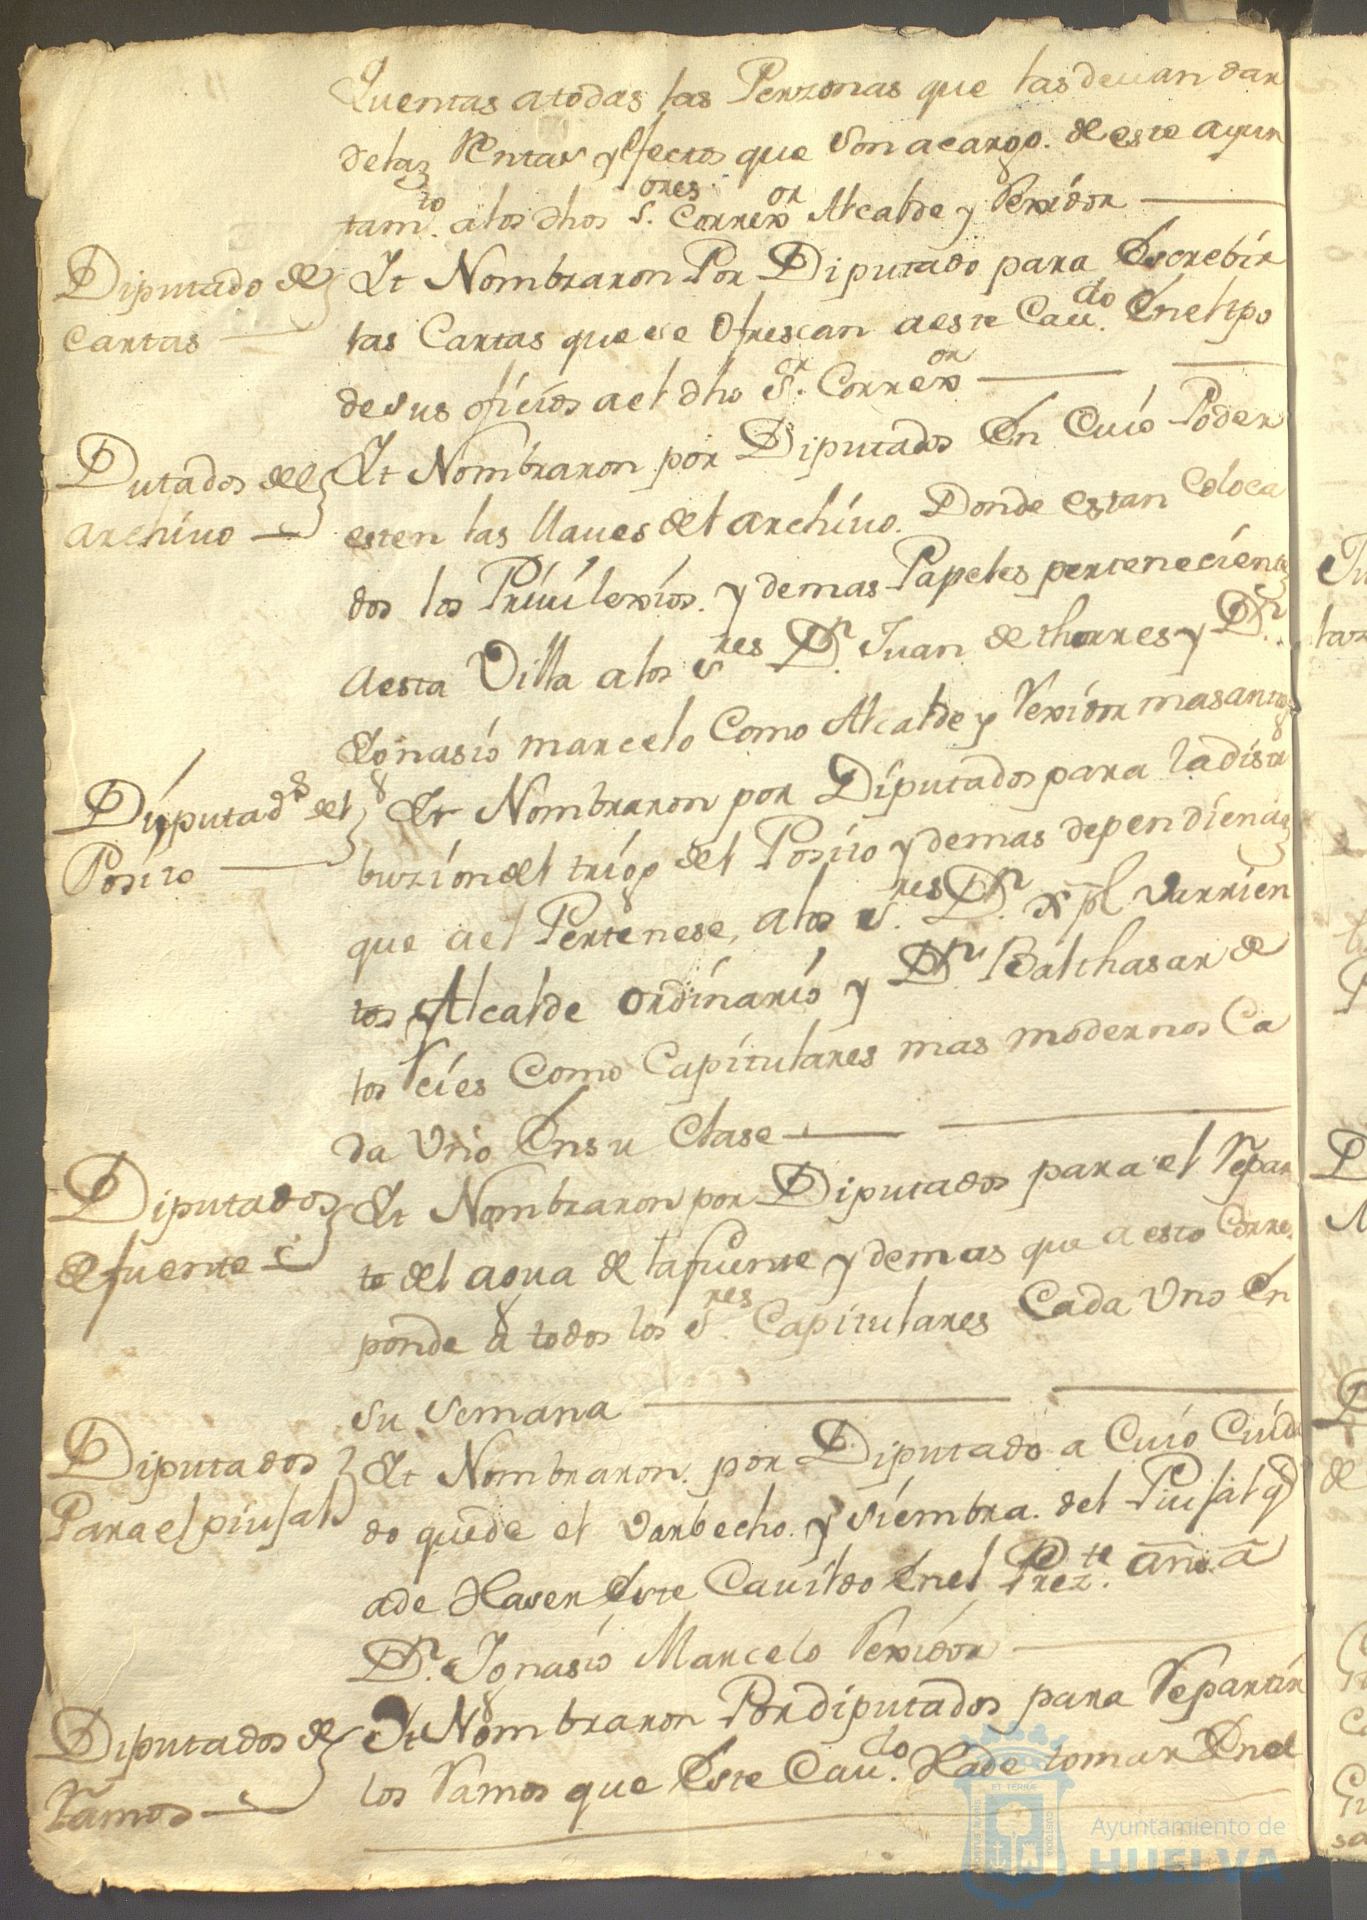 Quentas a todas las Perzonas que las devan dar
de las Rentas y efectos que son a cargo. de este ayun
tam.to a los dhos S.ores Correx.or Alcalde y Rexidor
Diputado de
cartas
It Nombraron Por Diputado para Escrebir
las Cartas que se ofrescan a este Cav.do En el tpo
de sus oficios a el dho S.r Correx.or
Dutados del
archivo
It Nombraron por Diputados En Cuio Poder
esten las llaues del archivo. Donde estan Coloca
dos los Priuilexios. y demas Papeles pertenecientes
a esta Villa a los S.res D.n Juan de thorres y D.n
Ignasio marcelo Como Alcalde y Rexidor mas antig
Diputad.s del
Posito
It Nombraron por Diputados para la distri
buzion del trigo del Posito y demas dependiencias
que a el Pertenese, a los S.res D.n Xpl Varrien
tos Alcalde ordinario y D.n Balthasar de
los Reies Como Capitulares mas modernos Ca
da Uno En su Clase
Diputados
de fuente
It Nombraron por Diputados para el Repar
to del agua de la fuente y demas que a esto Corres
ponde a todos los S.res Capitulares Cada Uno En
su semana
Diputados
Para el piujal
It Nombraron. por Diputado a Cuio Cuida
do quede el varbecho. y siembra. del Piujal q
a de Haser Este Cavildo En el Prez.te año. a
D.n Ignasio Marcelo Rexidor
Diputados de
Ramos
It Nombraron Por diputados para Repartir
los Ramos que Este Cau.do Ha de tomar En el
Ayuntamiento de
HUELVA